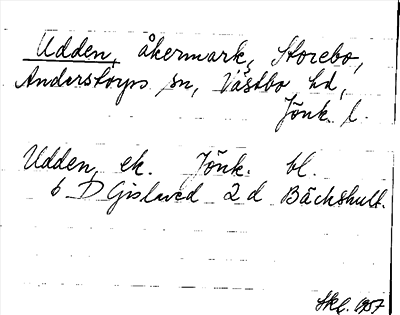 Udden, åkermark, Storebo,
Anderstorps sn, Västbo hd,
Jönk. l.
Udden ek. Jönk. bl.
6 D Gislaved 2 d Bäckshult.
Skg. 1957